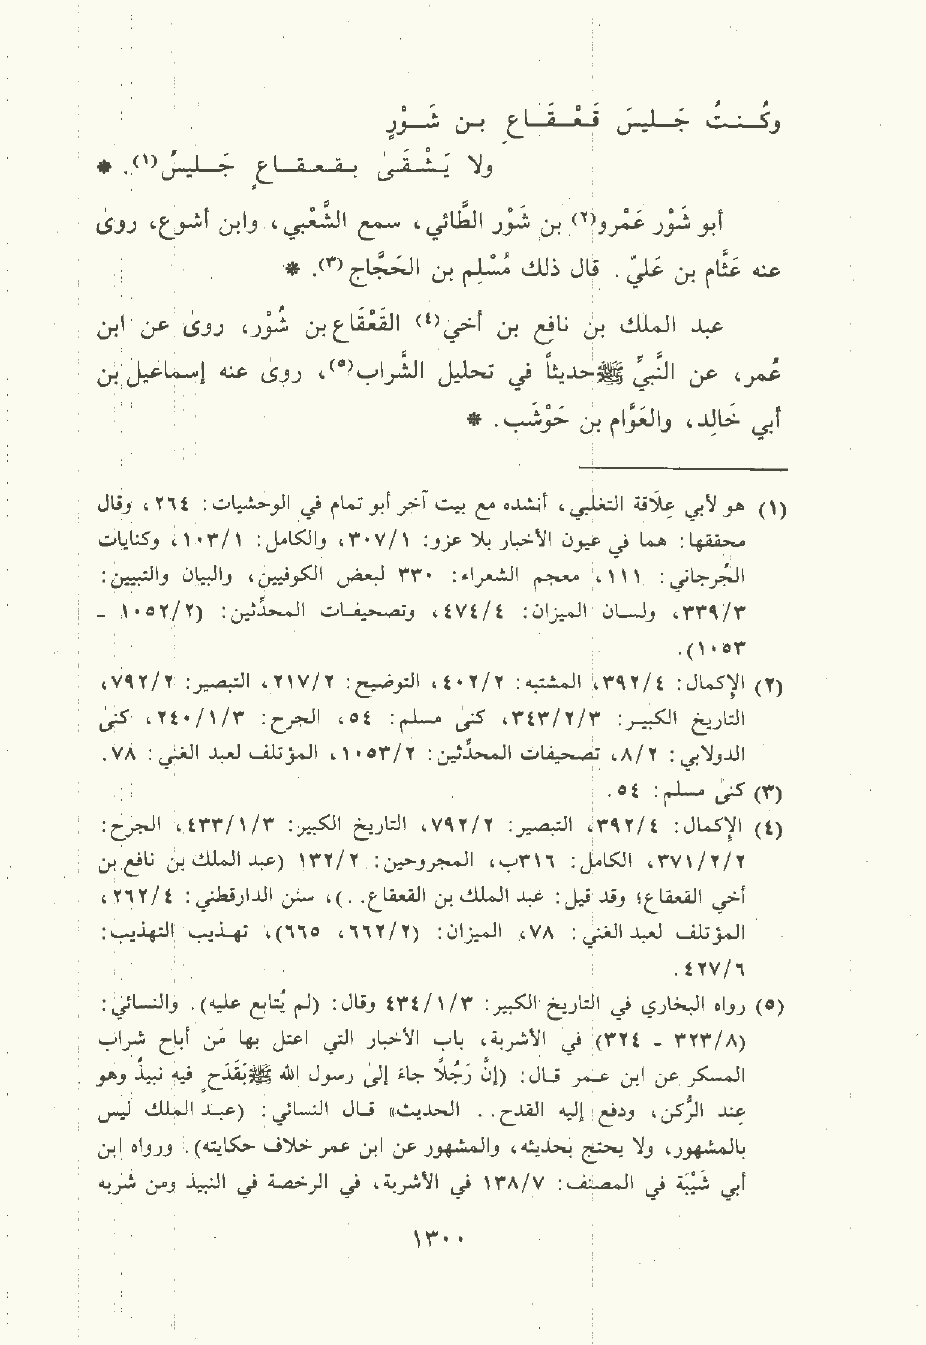 وكُـنـتُ جَـلـيسَ قَـعْـقَـاعِ بـن شَـوْرٍ
ولا يَـشْـقَـىٰ بـقـعـقـاعٍ جَـلـيسُ(١). *
أبو شَوْر عَمْرو(٢) بن شَوْر الطَّائي، سمع الشَّعْبي، وابن أشوع، روىٰ
عنه عَثَّام بن عَليّ. قال ذلك مُسْلِم بن الحَجَّاج(٣). *
عبد الملك بن نافع بن أخي(٤) القَعْقَاع بن شَوْر، روىٰ عن ابن
عُمر، عن النَّبيِّ ﷺ حديثاً في تحليل الشَّراب(٥)، روىٰ عنه إسماعيل بن
أبي خَالِد، والعَوَّام بن حَوْشَب. *
(١) هو لأبي عِلاقة التغلبي، أنشده مع بيت آخر أبو تمام في الوحشيات: ٢٦٤، وقال
محققها: هما في عيون الأخبار بلا عزو: ٣٠٧/١، والكامل: ١٠٣/١، وكنايات
الجُرجاني: ١١١، معجم الشعراء: ٣٣٠ لبعض الكوفيين، والبيان والتبيين:
٣٣٩/٣، ولسان الميزان: ٤٧٤/٤، وتصحيفات المحدِّثين: (١٠٥٢/٢ -
١٠٥٣).
(٢) الإكمال: ٣٩٢/٤، المشتبه: ٤٠٢/٢، التوضيح: ٢١٧/٢، التبصير: ٧٩٢/٢،
التاريخ الكبير: ٣٤٣/٢/٣، كنىٰ مسلم: ٥٤، الجرح: ٢٤٠/١/٣، كنىٰ
الدولابي: ٨/٢، تصحيفات المحدِّثين: ١٠٥٣/٢، المؤتلف لعبد الغني: ٧٨.
(٣) كنىٰ مسلم: ٥٤.
(٤) الإكمال: ٣٩٢/٤، التبصير: ٧٩٢/٢، التاريخ الكبير: ٤٣٣/١/٣، الجرح:
٣٧١/٢/٢، الكامل: ٣١٦ب، المجروحين: ١٣٢/٢ (عبد الملك بن نافع بن
أخي القعقاع؛ وقد قيل: عبد الملك بن القعقاع. .)، سنن الدارقطني: ٢٦٢/٤،
المؤتلف لعبد الغني: ٧٨، الميزان: (٦٦٢/٢، ٦٦٥)، تهذيب التهذيب:
٤٢٧/٦.
(٥) رواه البخاري في التاريخ الكبير: ٤٣٤/١/٣ وقال: (لم يُتابع عليه). والنسائي:
(٣٢٣/٨ - ٣٢٤) في الأشربة، باب الأخبار التي اعتل بها مَن أباح شراب
المسكر عن ابن عمر قال: (إنَّ رَجُلاً جاء إلىٰ رسول الله ﷺ بَقَدَحٍ فيه نبيذُ وهو
عند الرُّكن، ودفع إليه القدح. . الحديث» قال النسائي: (عبد الملك ليس
بالمشهور، ولا يحتج بحديثه، والمشهور عن ابن عمر خلاف حكايته). ورواه ابن
أبي شَيْبَة في المصنف: ١٣٨/٧ في الأشربة، في الرخصة في النبيذ ومن شربه
١٣٠٠